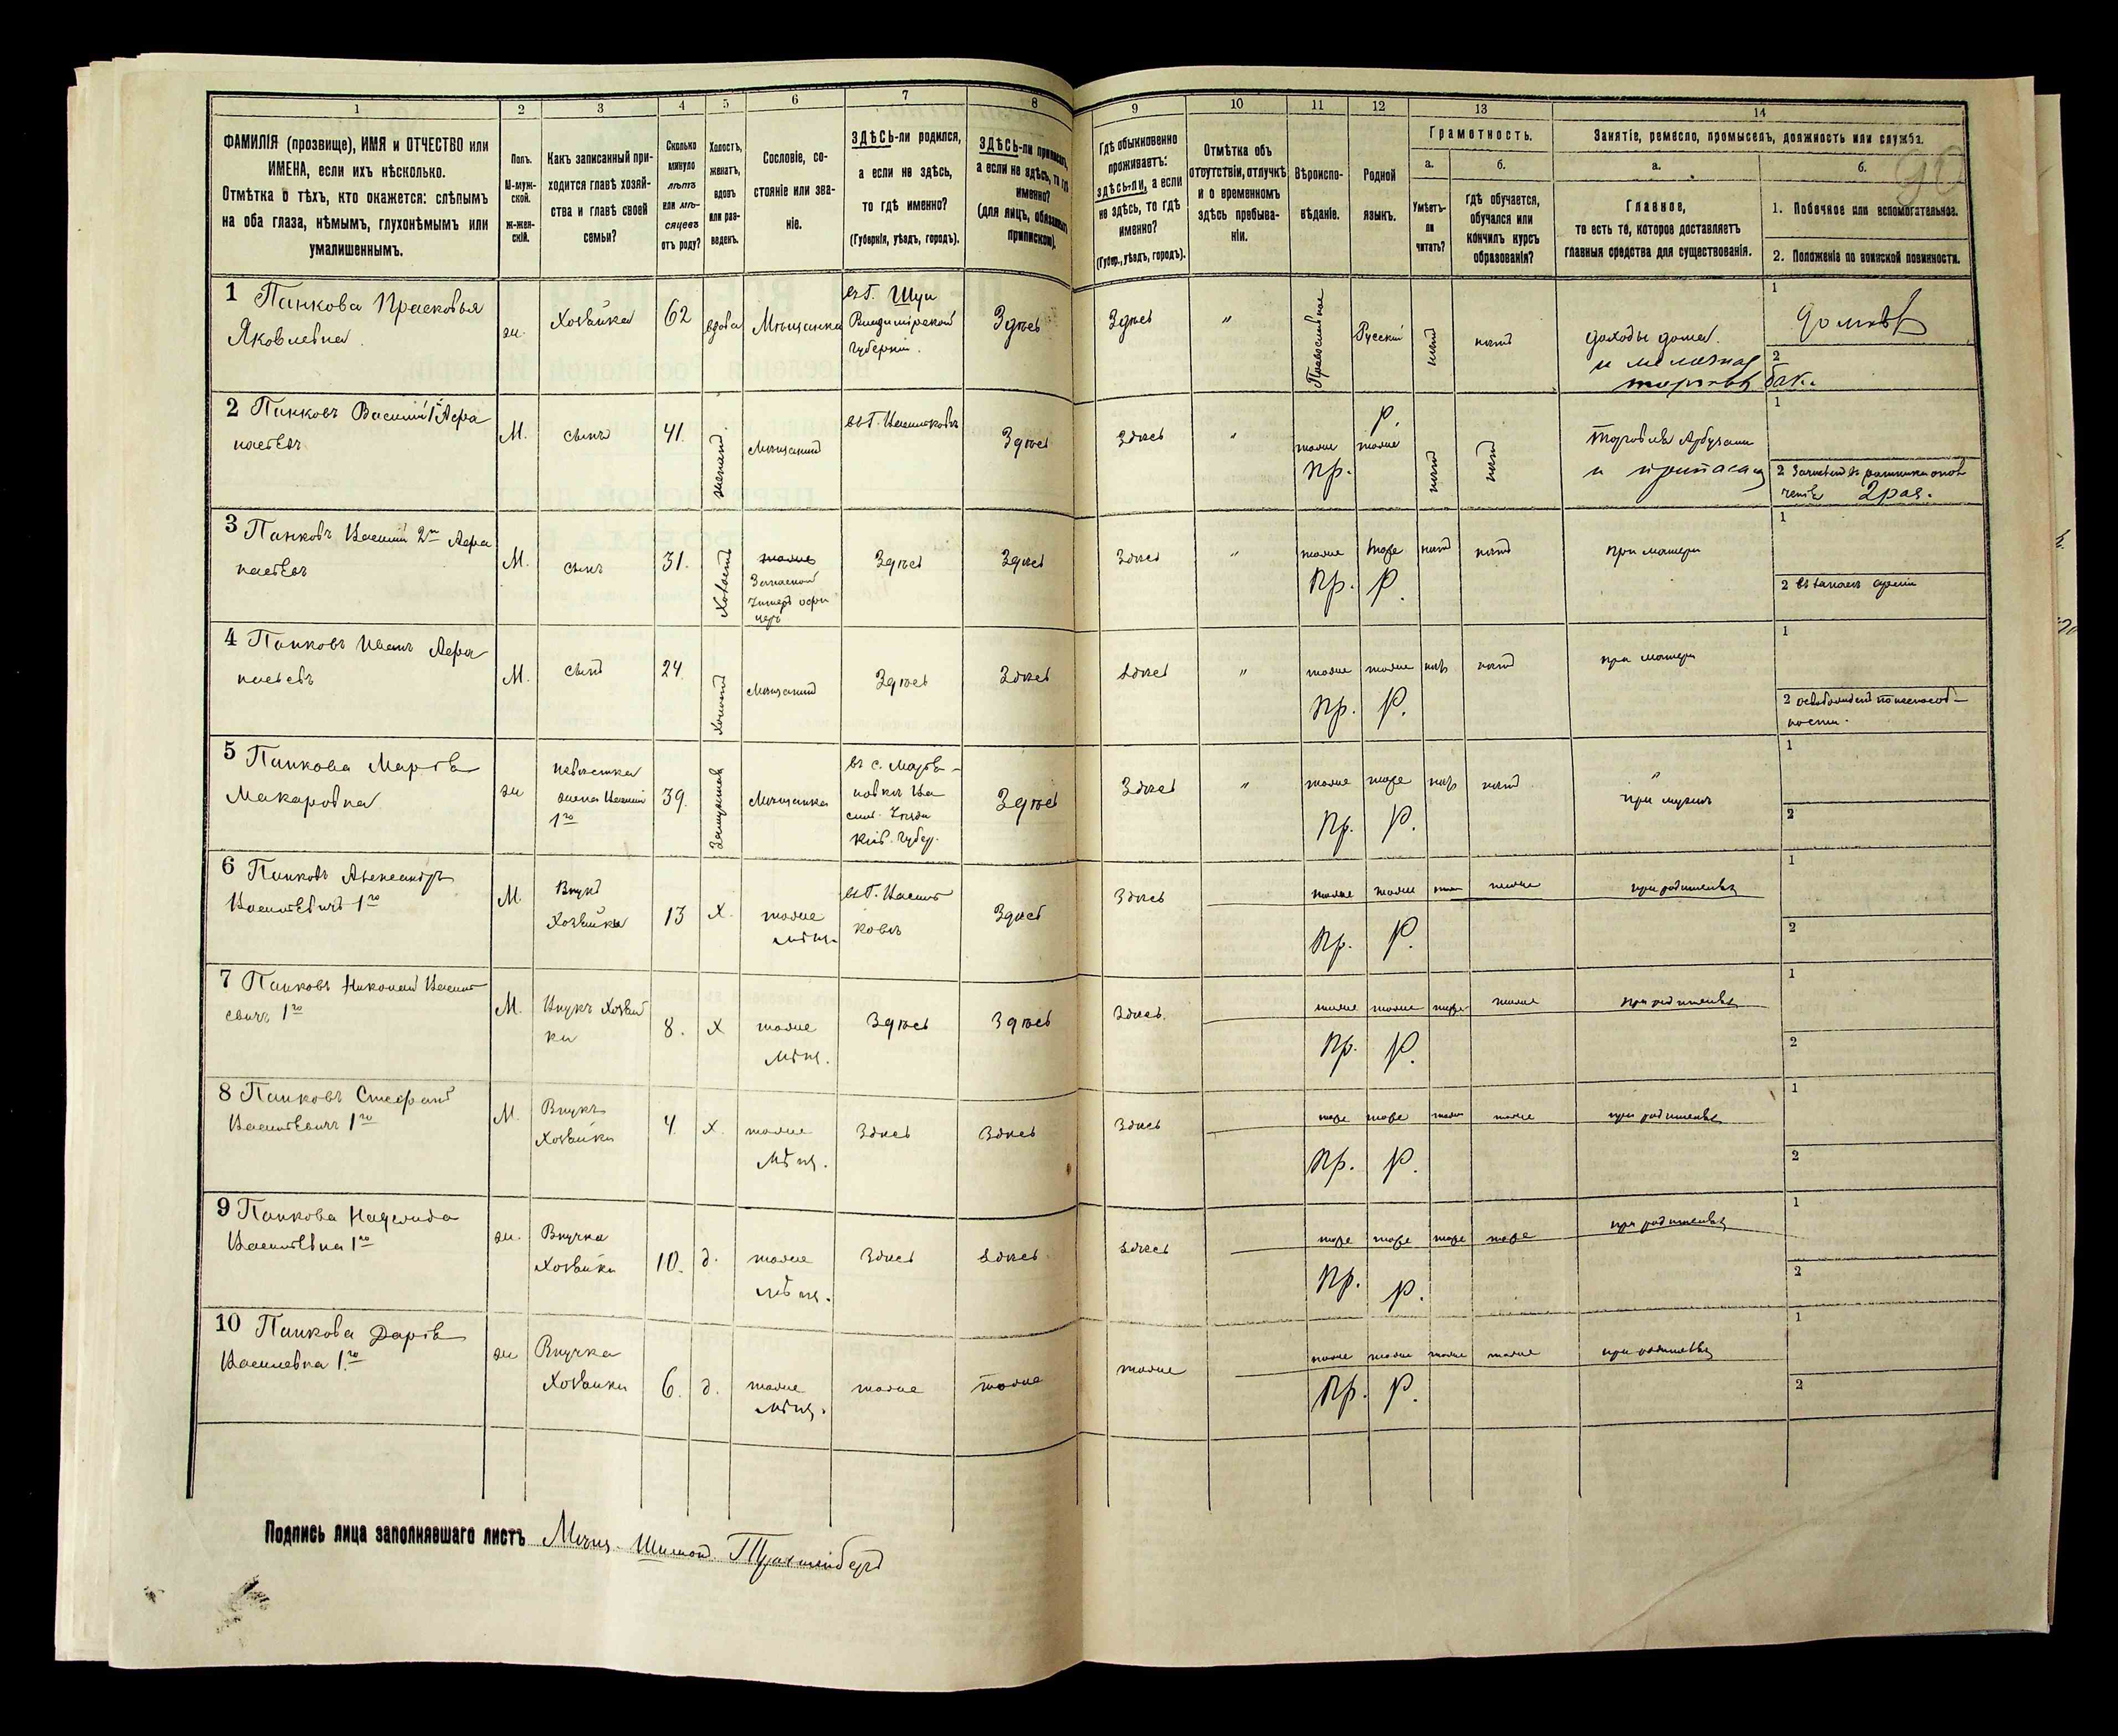 1 2 3 4 5 6 7 8 9 10 11 12 13 14
ФАМИЛІЯ (прозвище), ИМЯ и ОТЧЕСТВО или
ИМЕНА, если ихъ нѣсколько.
Отмѣтка о тѣхъ, кто окажется: слѣпымъ
на оба глаза, нѣмымъ, глухонѣмымъ или
умалишеннымъ.
Полъ.
М-муж-
ской.
Ж-жен-
скій.
Какъ записанный при-
ходится главѣ хозяй-
ства и главѣ своей
семьи?
Сколько
минуло
лѣтъ
или мѣ-
сяцевъ
отъ роду?
Холостъ,
женатъ,
вдовъ
или раз-
веденъ.
Сословіе, со-
стояніе или зва-
ніе.
ЗДѢСЬ-ли родился,
а если не здѣсь,
то гдѣ именно?
(Губернія, уѣздъ, городъ).
ЗДѢСЬ-ли приписанъ,
а если не здѣсь, то гдѣ
именно?
(для лицъ, обязанныхъ
припиской).
Гдѣ обыкновенно
проживаетъ:
здѣсь-ли, а если
не здѣсь, то гдѣ
именно?
(Губер., уѣздъ, городъ).
Отмѣтка объ
отсутствіи, отлучкѣ
и о временномъ
здѣсь пребыва-
ніи.
Вѣроиспо-
вѣданіе.
Родной
языкъ.
Грамотность.
а. б.
Умѣетъ-
ли
читать?
гдѣ обучается,
обучался или
кончилъ курсъ
образованія?
Занятіе, ремесло, промыселъ, должность или служба.
а. б.
Главное,
то есть то, которое доставляетъ
главныя средства для существованія.
1. Побочное или вспомогательное.
2. Положеніе по воинской повинности.
90
1 Панкова Прасковья
Яковлевна.
ж.
Хозяйка
62
вдова
Мѣщанка
въ Г. Шуи
Владимірской
губерніи.
Здѣсь
Здѣсь
"
Православное
Русскій
нѣтъ
нѣтъ
доходы дома.
и мелочная
торговля бак.
1
2
2 Панковъ Василій 1й Афа
насьевъ
М.
сынъ
41.
женатъ
Мѣщанинъ
въ Г. Васильковъ
Здѣсь
Здѣсь
"
тоже
Пр.
Р.
тоже
нѣтъ
нѣтъ
Торговля Арбузами
и припасами
1
2 Зачисленъ въ ратники опол
ченія 2 раз.
3 Панковъ Василій 2й Афа
насьевъ
М.
сынъ
31.
Холостъ
тоже
Запасной
Унтеръ офи
церъ
Здѣсь
Здѣсь
Здѣсь
"
тоже
Пр.
тоже
Р.
нѣтъ
нѣтъ
при матери
1
2 въ запасѣ арміи
4 Панковъ Иванъ Афа
насьевъ
М.
сынъ
24
Холостъ
Мѣщанинъ
Здѣсь
Здѣсь
Здѣсь
"
тоже
Пр.
тоже
Р.
нѣтъ
нѣтъ
при матери
1
2 освобожденъ по неспособ-
ности.
5 Панкова Марія
Макаровна
ж
невѣстка
жена Василія
1го
39.
Замужняя
Мѣщанка
въ с. Марья-
новкѣ Ва
сильк. Уѣзда
Кіев. Губер.
Здѣсь
Здѣсь
"
тоже
Пр.
тоже
Р.
нѣтъ
нѣтъ
"
при мужѣ
1
2
6 Панковъ Александръ
Васильевичъ 1го
М.
Внукъ
Хозяйки
13
х.
тоже
Мѣщ.
въ Г. Василь
ковѣ
Здѣсь
Здѣсь
тоже
Пр.
тоже
Р.
тоже
тоже
при родителяхъ
1
2
7 Панковъ Николай Василь
евичъ 1го
М.
Внукъ Хозяй
ки
8.
х
тоже
Мѣщ.
Здѣсь
Здѣсь
Здѣсь
тоже
Пр.
тоже
Р.
тоже
тоже
при родителяхъ
1
2
8 Панковъ Стефанъ
Васильевичъ 1го
М.
Внукъ
Хозяйки
4
х.
тоже
Мѣщ.
Здѣсь
Здѣсь
Здѣсь
тоже
Пр.
тоже
Р.
тоже
тоже
при родителяхъ
1
2
9 Панкова Надежда
Васильевна 1го
ж.
Внучка
Хозяйки
10.
д.
тоже
Мѣщ.
Здѣсь
Здѣсь
Здѣсь
тоже
Пр.
тоже
Р.
тоже
тоже
при родителяхъ
1
2
10 Панкова Дарія
Васильевна 1го
ж
Внучка
Хозяйки
6.
д.
тоже
Мѣщ.
тоже
тоже
тоже
тоже
Пр.
тоже
Р.
тоже
тоже
при родителяхъ
1
2
Подпись лица заполнявшаго листъ Мѣщ. Шимон